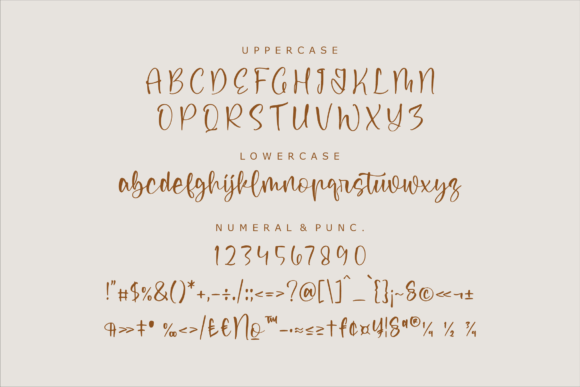 UPPERCASE
ABCDEFGHIJKLMN
OPQRSTUVWXYZ
LOWERCASE
abcdefghijklmnopqrstuvwxyz
NUMERAL & PUNC.
1234567890
!"#$%&()*+,-÷./:;<=>?@[\]^_`{}¡~§©«¬±
¶»‡°‰<>/₤€№™–·≈≤≥†£¢¤¥¦§ª®¼ ½ ¾